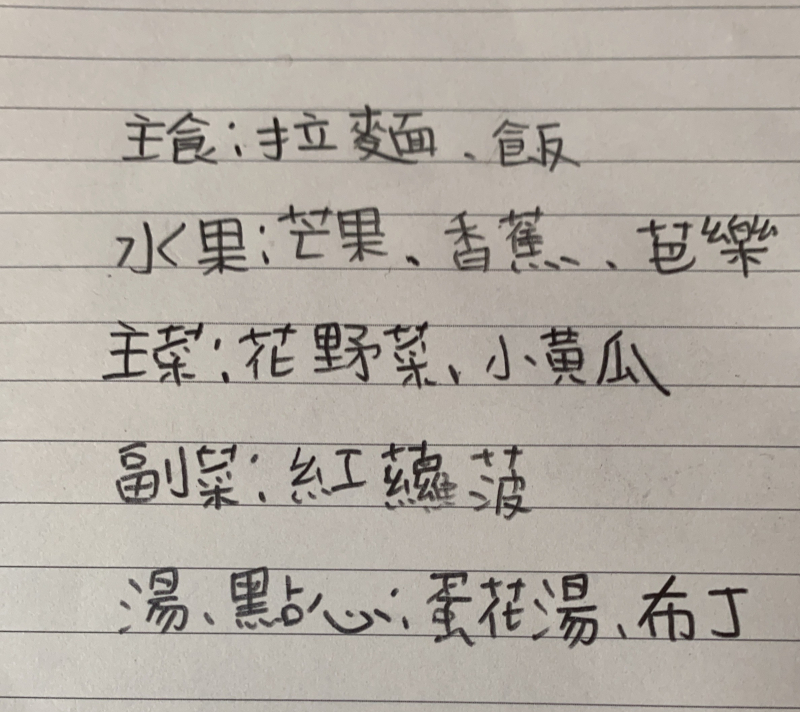 主食:拉麵、飯
水果:芒果、香蕉、芭樂
主菜:花野菜、小黃瓜
副菜:紅蘿菠
湯、點心:蛋花湯、布丁